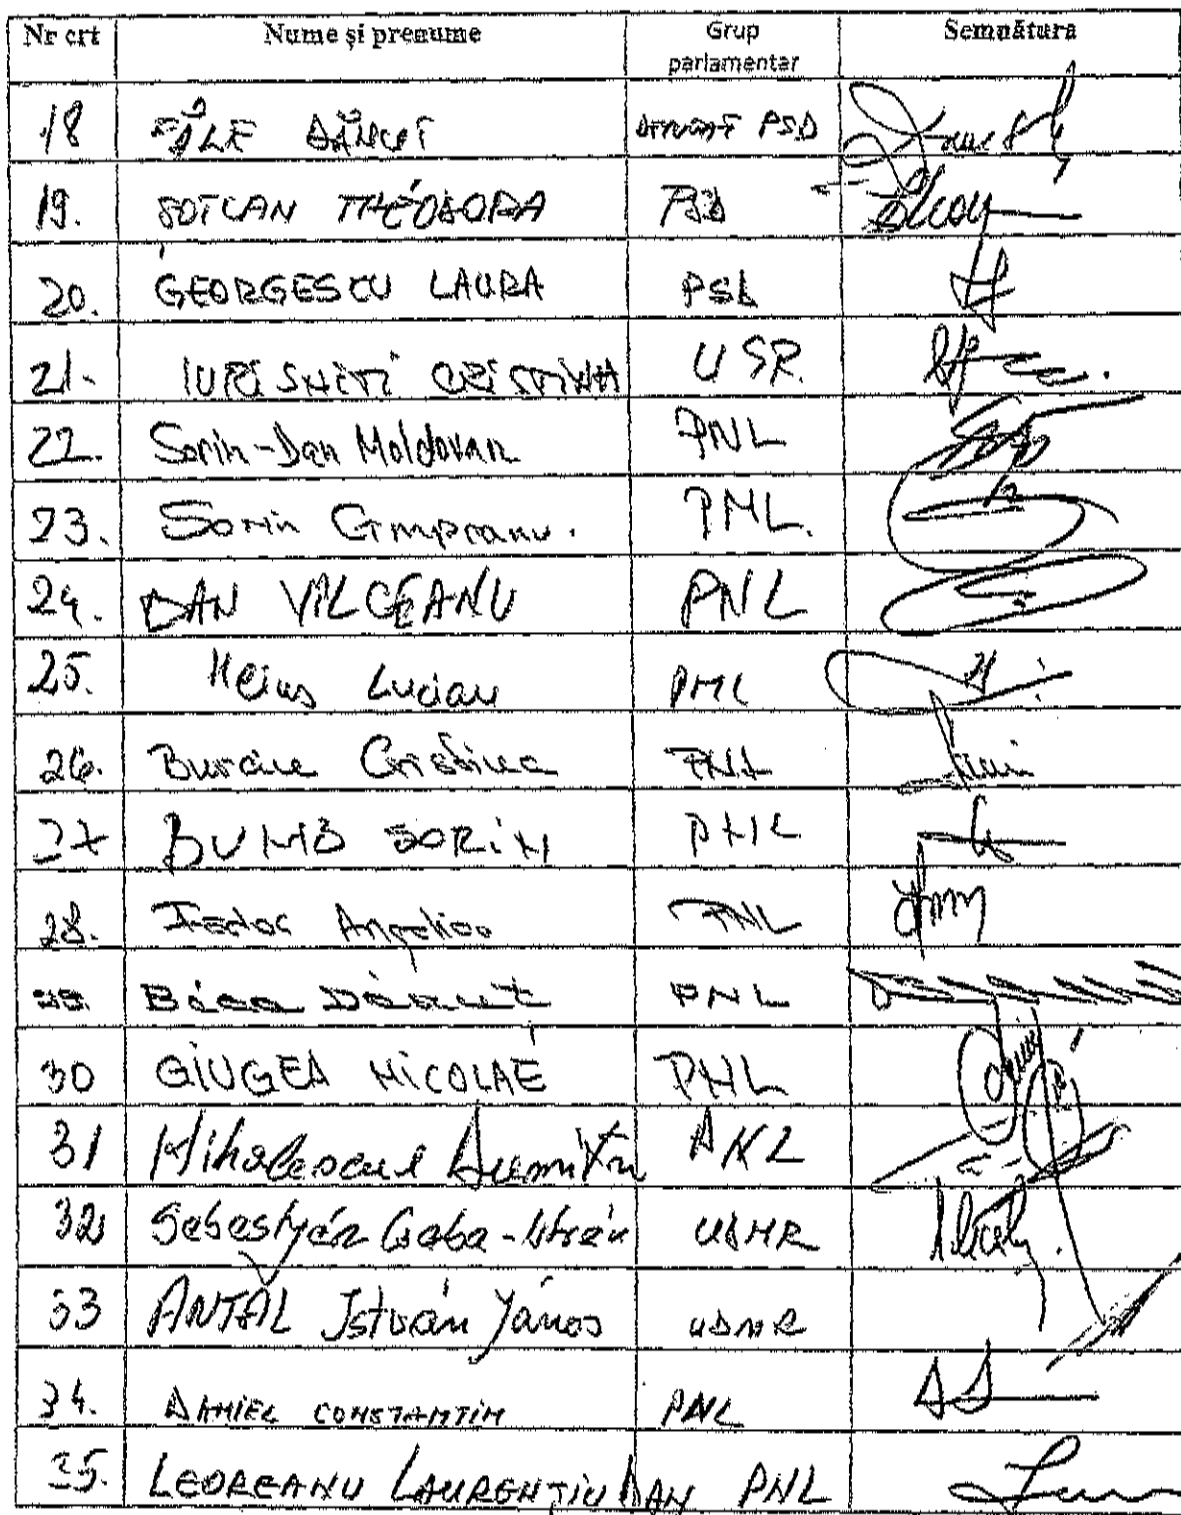 Nr crt Nume și prenume Grup parlamentar Semnătura
18 FĂLE DĂNUȚ PSD
19. SOTCAN THEODORA PSD
20. GEORGESCU LAURA PSD
21. IURIȘNIȚI CRISTINA USR.
22. Sorin-Dan Moldovan PNL
23. Sorin Cîmpeanu. PNL.
24. DAN VÎLCEANU PNL
25. Heiuș Lucian PNL
26. Burciu Cristina PNL
27 BUMB SORIN PNL
28. Fădor Angelica PNL
Bica Dănuț PNL
30 GIUGEA NICOLAE PNL
31 Mihalescul Dumitru PNL
32 Sebestyén Csaba-István UDMR
33 ANTAL István János UDMR
34. DANIEL CONSTANTIN PNL
35. LEOREANU LAURENȚIU DAN PNL